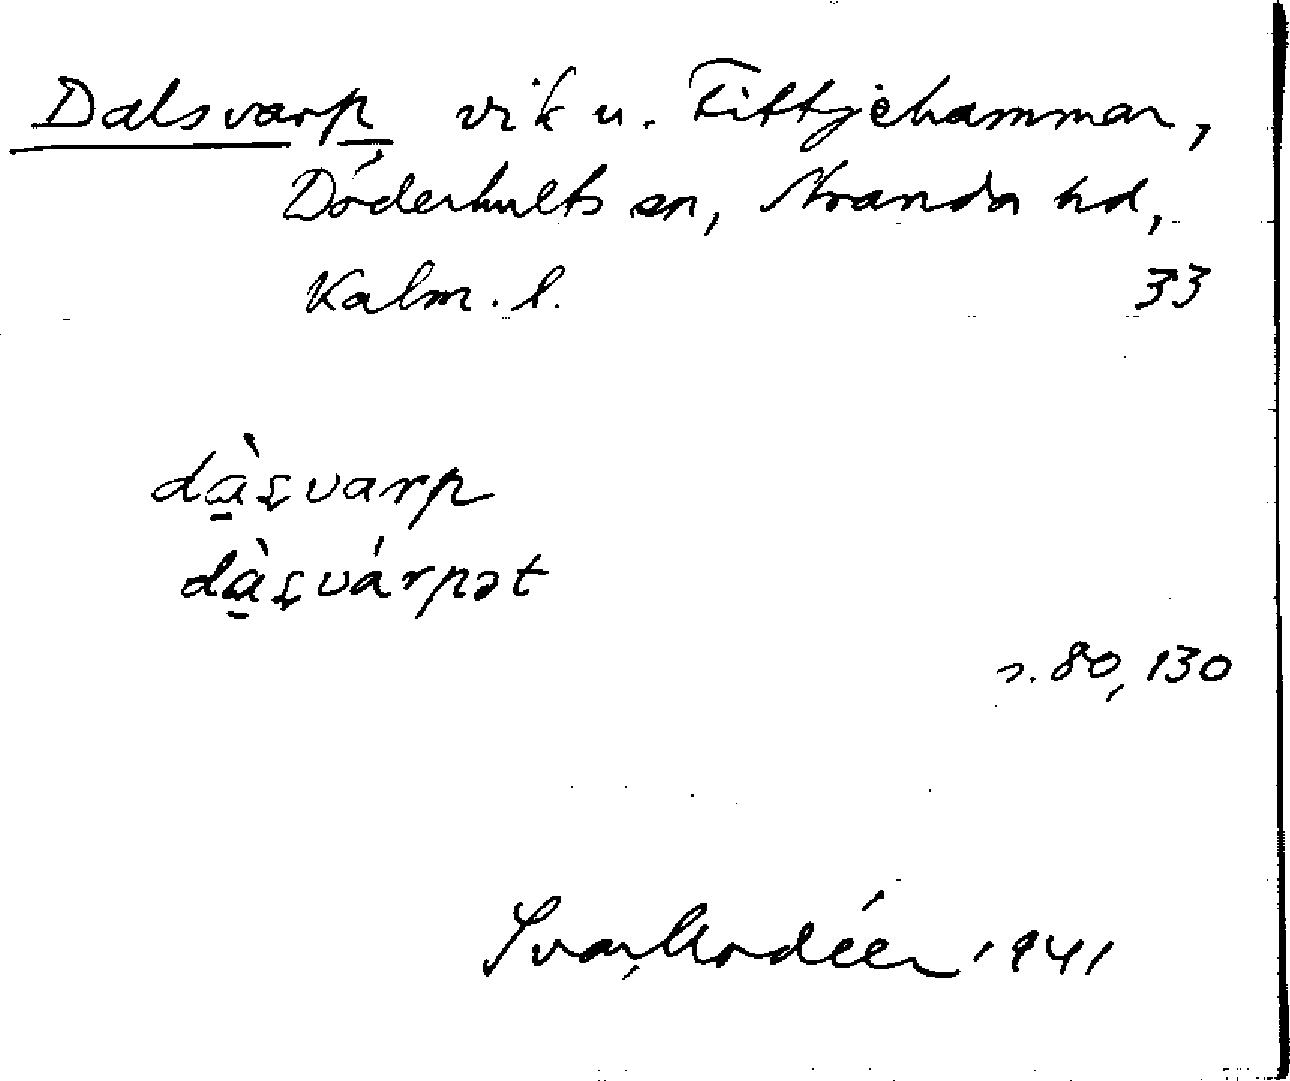 Dalsvarp vik u. Fittjehammar,
Döderhults sn, Stranda hd,
Kalm. l. 33
dàs̨varp
dàs̨várpət
s. 80, 130
Ivar Modéer 1941